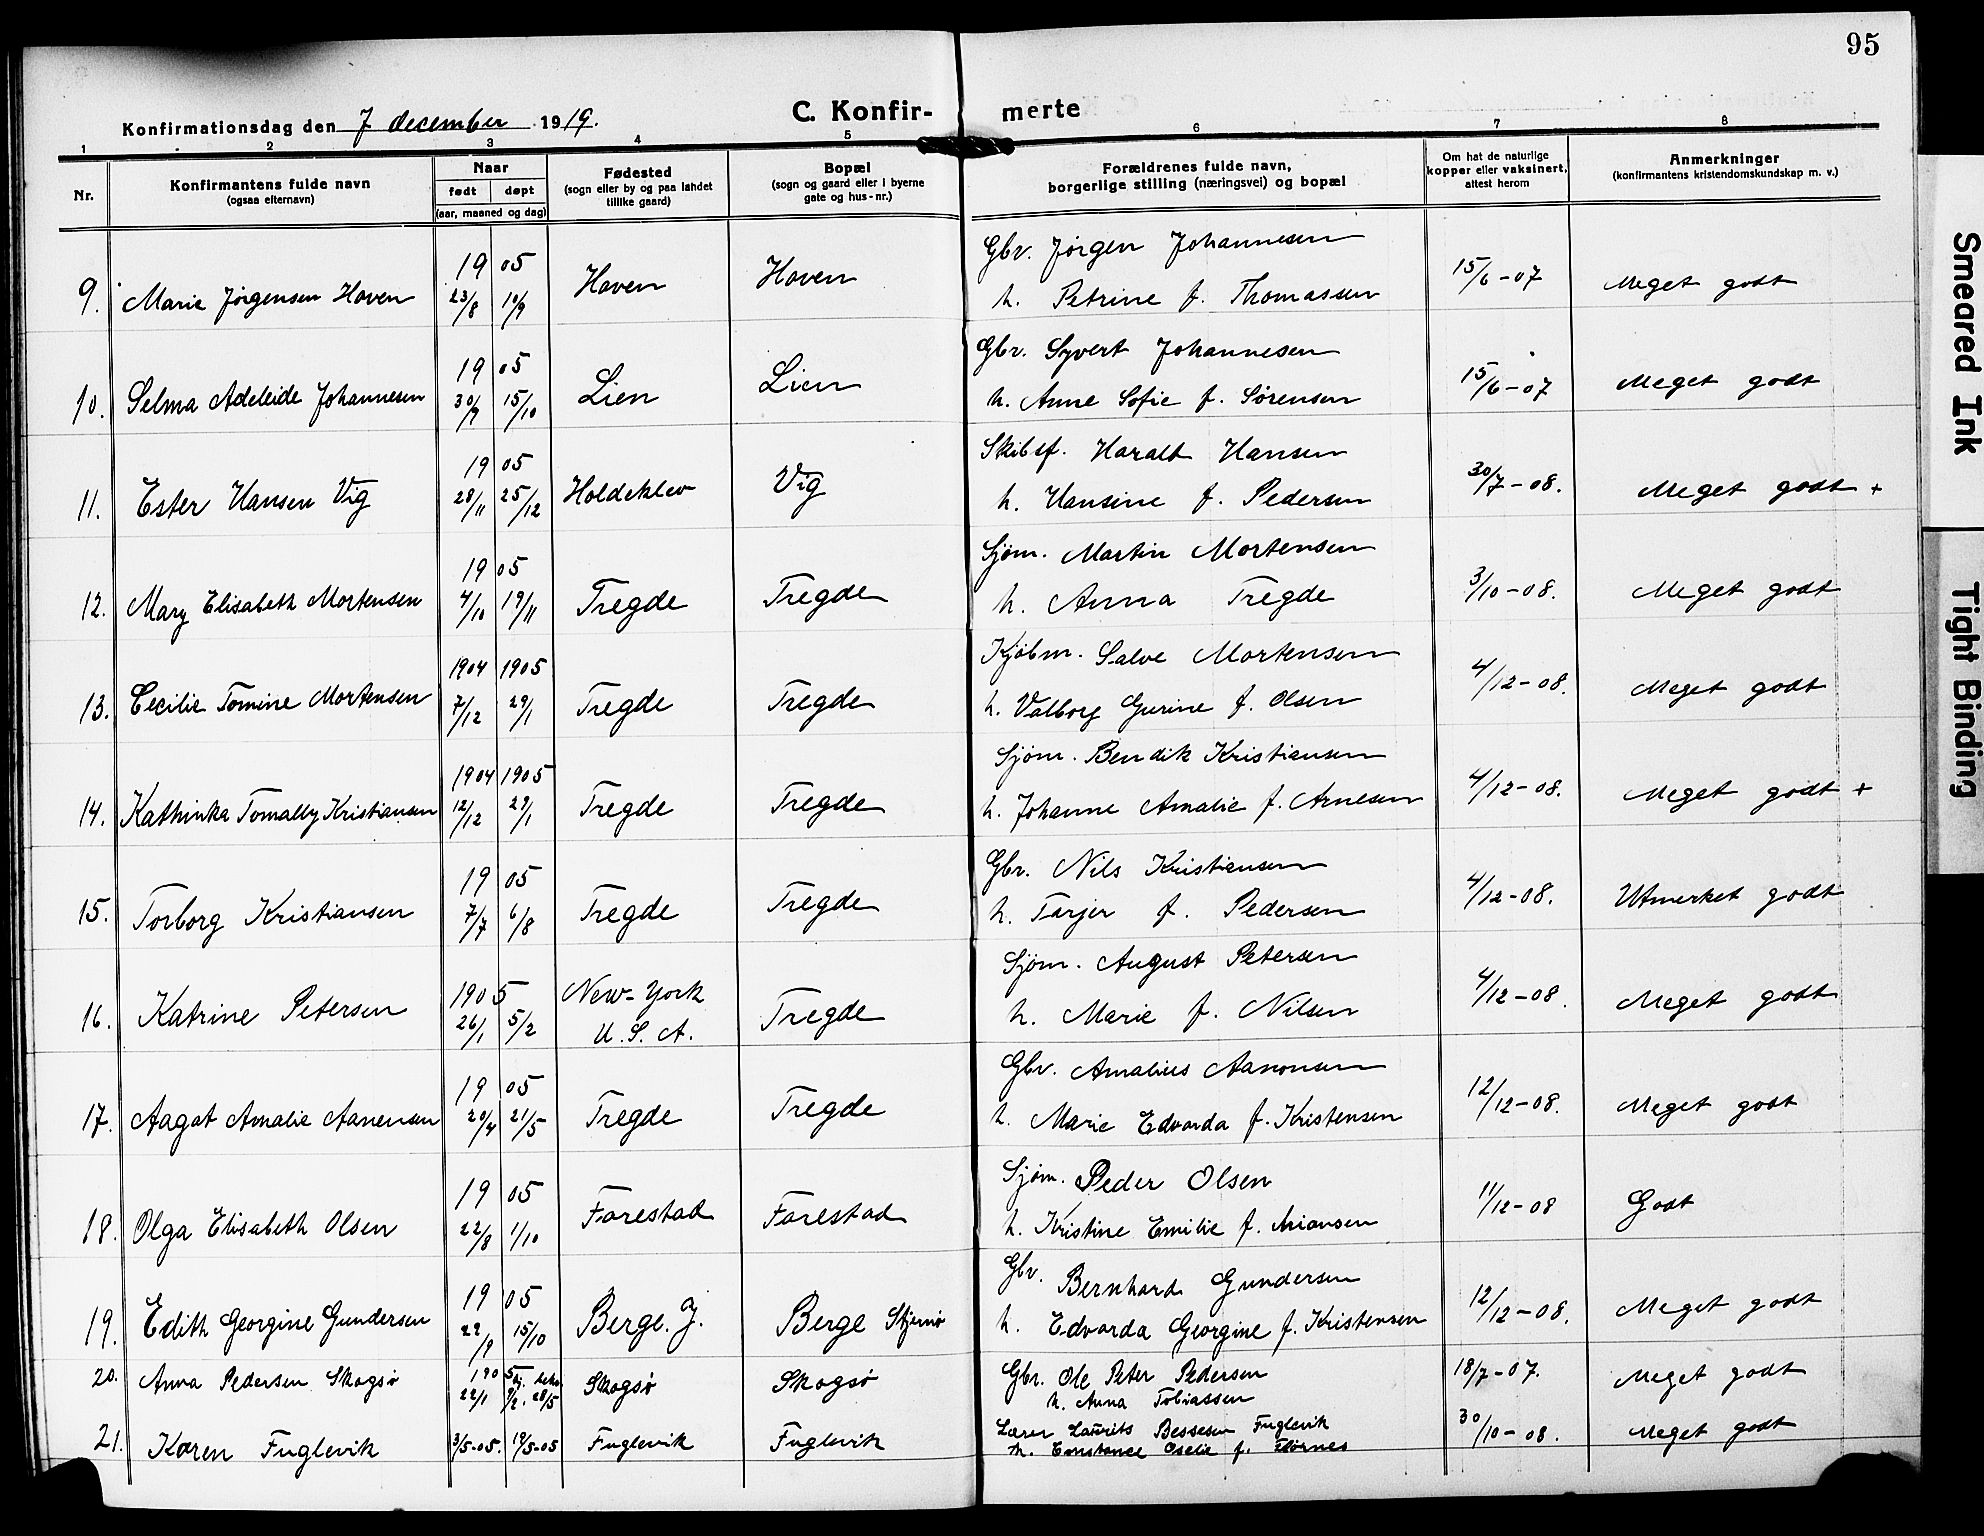 95
Konfirmationsdag den 7 december 1919.
C. Konfir- merte
1 2 3 4 5 6 7 8
Nr.
Konfirmantens fulde navn
(ogsaa elternavn)
Naar
født døpt
(aar, maaned og dag)
Fødested
(sogn eller by og paa landet
tillike gaard)
Bopæl
(sogn og gaard eller i byerne
gate og hus-nr.)
Forældrenes fulde navn,
borgerlige stilling (næringsvei) og bopæl
Om hat de naturlige
kopper eller vaksinert,
attest herom
Anmerkninger
(konfirmantens kristendomskundskap m. v.)
9. Marie Jørgensen Haven 1905 23/8 10/9 Haven Haven Gbr. Jørgen Johannesen
h. Petrine f. Thomassen 15/6-07 Meget godt
10. Selma Adeleide Johannesen 1905 30/9 15/10 Lien Lien Gbr. Syvert Johannesen
h. Anne Sofie f. Sørensen 15/6-07 Meget godt
11. Ester Hansen Vig 1905 28/11 25/12 Holdeklev Vig Skibsf. Haralt Hansen
h. Hansine f. Pedersen 30/7-08. Meget godt +
12. Mary Elisabeth Mortensen 1905 4/10 19/11 Tregde Tregde Sjøm. Martin Mortensen
h. Anna Tregde 3/10-08. Meget godt
13. Cecilie Tomine Mortensen 1904 1905 7/12 29/1 Tregde Tregde Kjøbm. Salve Mortensen
h. Valborg Gurine f. Olsen 4/12-08. Meget godt
14. Kathinka Tomally Kristiansen 1904 1905 12/12 29/1 Tregde Tregde Sjøm. Bendik Kristiansen
h. Johanne Amalie f. Arnesen 4/12-08. Meget godt +
15. Torborg Kristiansen 1905 7/7 6/8 Tregde Tregde Gbr. Nils Kristiansen
h. Tarjer f. Pedersen 4/12-08. Utmerket godt
16. Katrine Petersen 1905 26/1 5/2 New-York
U.S.A. Tregde Sjøm. August Petersen
h. Marie f. Nilsen 4/12-08. Meget godt
17. Aagot Amalie Aanensen 1905 20/4 21/5 Tregde Tregde Gbr. Amalius Aanonsen
h. Marie Edvarda f. Kristensen 12/12-08. Meget godt
18. Olga Elisabeth Olsen 1905 22/8 1/10 Farestad Farestad Sjøm. Peder Olsen
h. Kristine Emilie f. 11/12-08 Godt
19. Edith Georgine Gundersen 1905 22/9 15/10 Berge. J. Berge Stjernø Gbr. Bernhard Gundersen
h. Edvarda Georgine f. Kristensen 12/12-08. Meget godt
20. Anna Pedersen Skogsø 1905 22/1 28/5 Skogsø Skogsø Gbr. Ole Peter Pedersen
h. Anna Tobiassen 18/7-07. Meget godt
21. Karen Fuglevik 3/5-05. 19/5-05 Fuglevik Fuglevik Lærer Laurits Bessesen Fuglevik
h. f. 30/10-08. Meget godt
Smeared Ink
Tight Binding